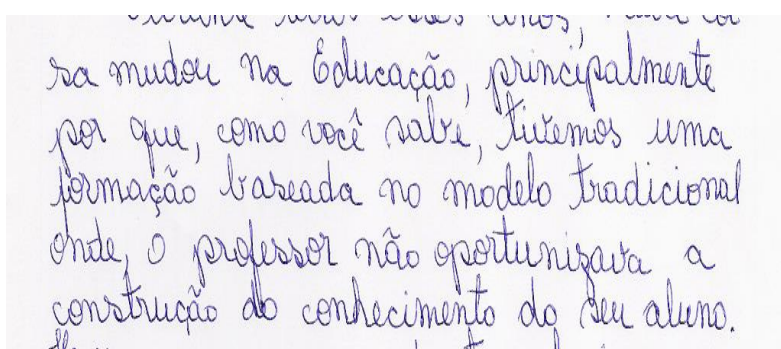 todos esses anos, muita coi
sa mudou na Educação, principalmente
por que, como você sabe, tivemos uma
formação baseada no modelo tradicional
onde, o professor não oportunizava a
construção do conhecimento do seu aluno.